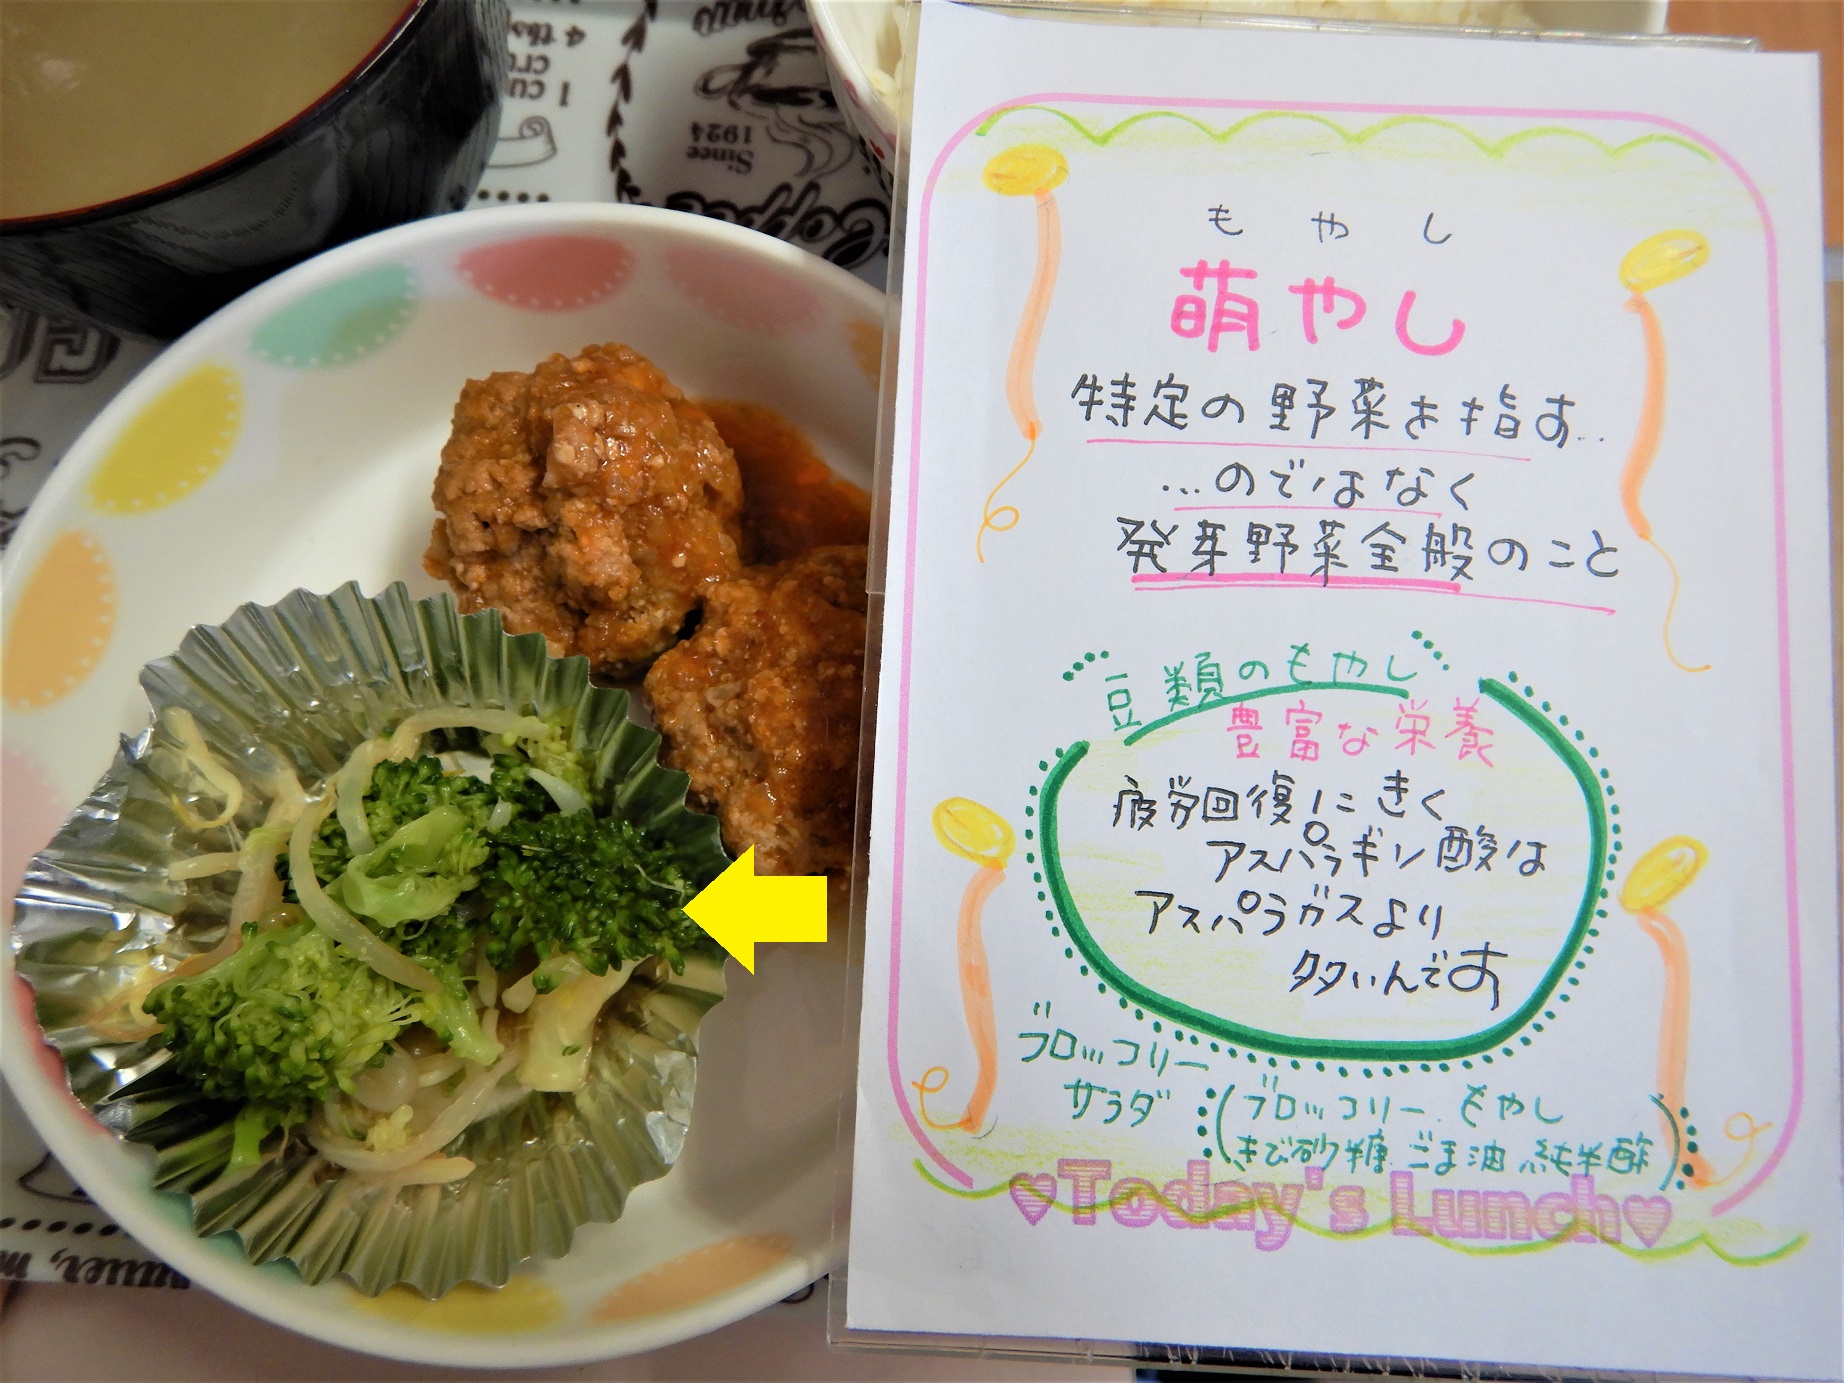 もやし
萌やし
特定の野菜を指す..
...のではなく
発芽野菜全般のこと
豆類のもやし
豊富な栄養
疲労回復にきく
アスパラギン酸は
アスパラガスより
多いんです
ブロッコリー
サラダ
(ブロッコリー.もやし
きび砂糖.ごま油.純米酢)
♥Today's Lunch♥
Since
1924
Coffee